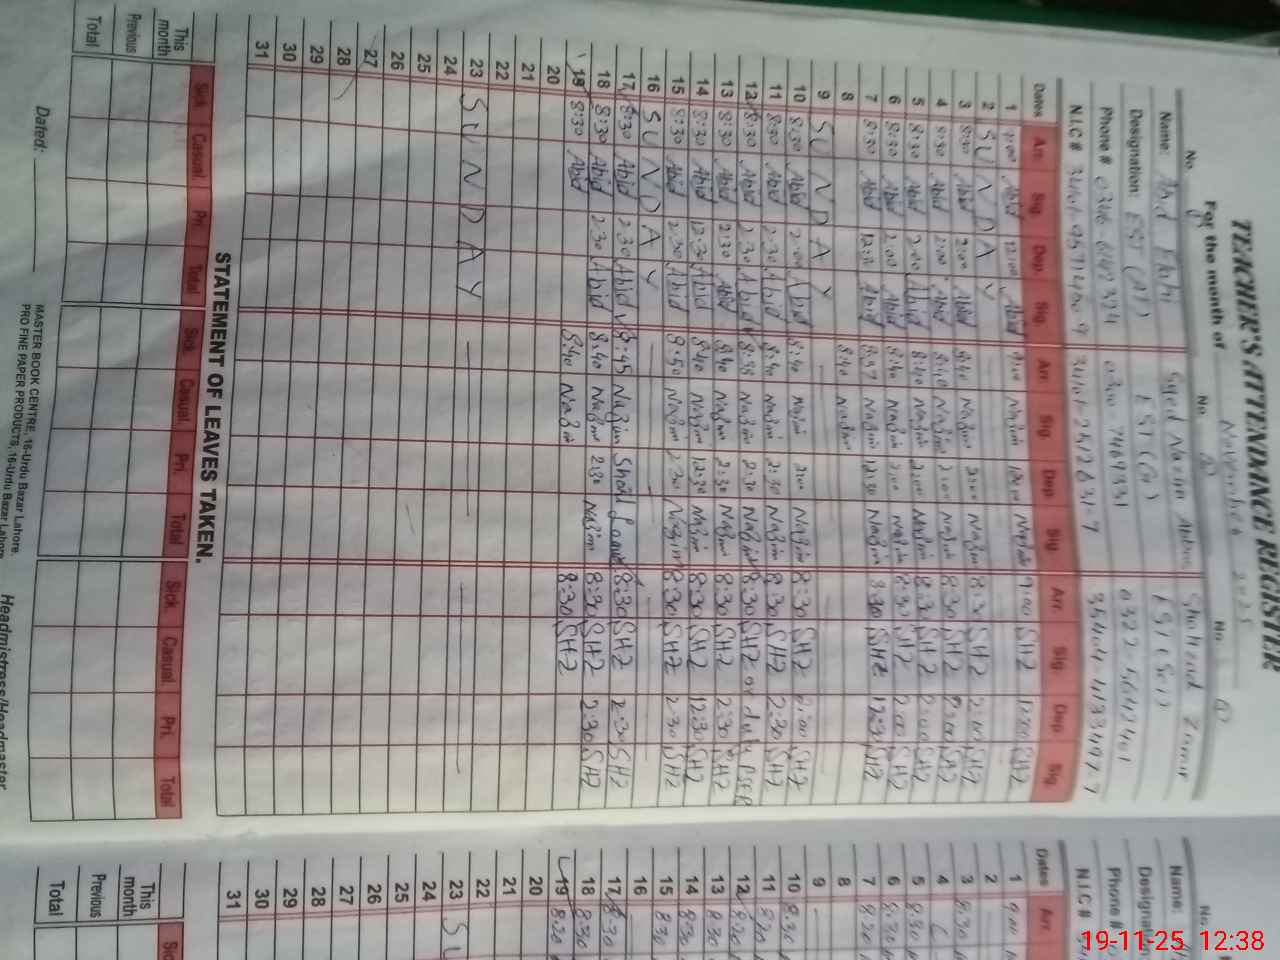 TEACHER'S ATTENDENCE REGISTER
For the month of November 2025
No. No. No.
Name: Abid Syed Shahzad
Designation: EST
Phone #
N.I.C #
Dates Arr. Sig. Dep. Sig. Arr. Sig. Dep. Sig. Arr. Sig. Dep. Sig.
1 9:00 Abid 12:00 Abid 9:00 Nazim 12:00 Nazim 9:00 SHZ 12:00 SHZ
2 SUNDAY
3 8:30 Abid 2:00 Abid 8:40 Nazim 2:00 Nazim 8:30 SHZ 2:00 SHZ
4 8:30 Abid 2:00 Abid 8:40 Nazim 2:00 Nazim 8:30 SHZ 2:00 SHZ
5 8:30 Abid 2:00 Abid 8:40 Nazim 2:00 Nazim 8:30 SHZ 2:00 SHZ
6 8:30 Abid 2:00 Abid 8:40 Nazim 2:00 Nazim 8:30 SHZ 2:00 SHZ
7 8:30 Abid 12:30 Abid Nazim 12:30 Nazim 8:30 SHZ 12:30 SHZ
8 8:40 Nazim
9 SUNDAY
10 8:30 Abid 2:00 Abid 8:40 Nazim 2:00 Nazim 8:30 SHZ 2:00 SHZ
11 8:30 Abid 2:30 Abid 8:40 Nazim 2:30 Nazim 8:30 SHZ 2:30 SHZ
12 8:30 Abid 2:30 Abid Nazim 2:30 Nazim 8:30 SHZ on duty
13 8:30 Abid 2:30 Abid 8:40 Nazim 2:30 Nazim 8:30 SHZ 2:30 SHZ
14 8:30 Abid 12:30 Abid 8:40 Nazim 12:30 Nazim 8:30 SHZ 12:30 SHZ
15 8:30 Abid 2:30 Abid Nazim 2:30 Nazim 8:30 SHZ 2:30 SHZ
16 SUNDAY
17 8:30 Abid 2:30 Abid 8:45 Nazim Short Leave 8:30 SHZ 2:30 SHZ
18 8:30 Abid 2:30 Abid 8:40 Nazim 2:30 Nazim 8:30 SHZ 2:30 SHZ
19 8:30 Abid 8:40 Nazim 8:30 SHZ
20
21
22
23 SUNDAY
24
25
26
27
28
29
30
31
STATEMENT OF LEAVES TAKEN.
Sick. Casual. Pri. Total Sick. Casual. Pri. Total Sick. Casual. Pri. Total
This month
Previous
Total
Dated:
MASTER BOOK CENTRE, 16-Urdu Bazar Lahore.
PRO FINE PAPER PRODUCTS, 16-Urdu Bazar Lahore.
Headmistress/Headmaster
No.
Name:
Phone #
N.I.C #
Dates Arr.
1 9:00
2
3 8:30
4
5 8:30
6 8:30
7 8:20
8
9
10 8:30
11 8:20
12 8:20
13 8:30
14 8:30
15 8:30
16
17 8:30
18 8:30
19 8:20
20
21
22
23 SU
24
25
26
27
28
29
30
31
This month
Previous
Total
19-11-25 12:38